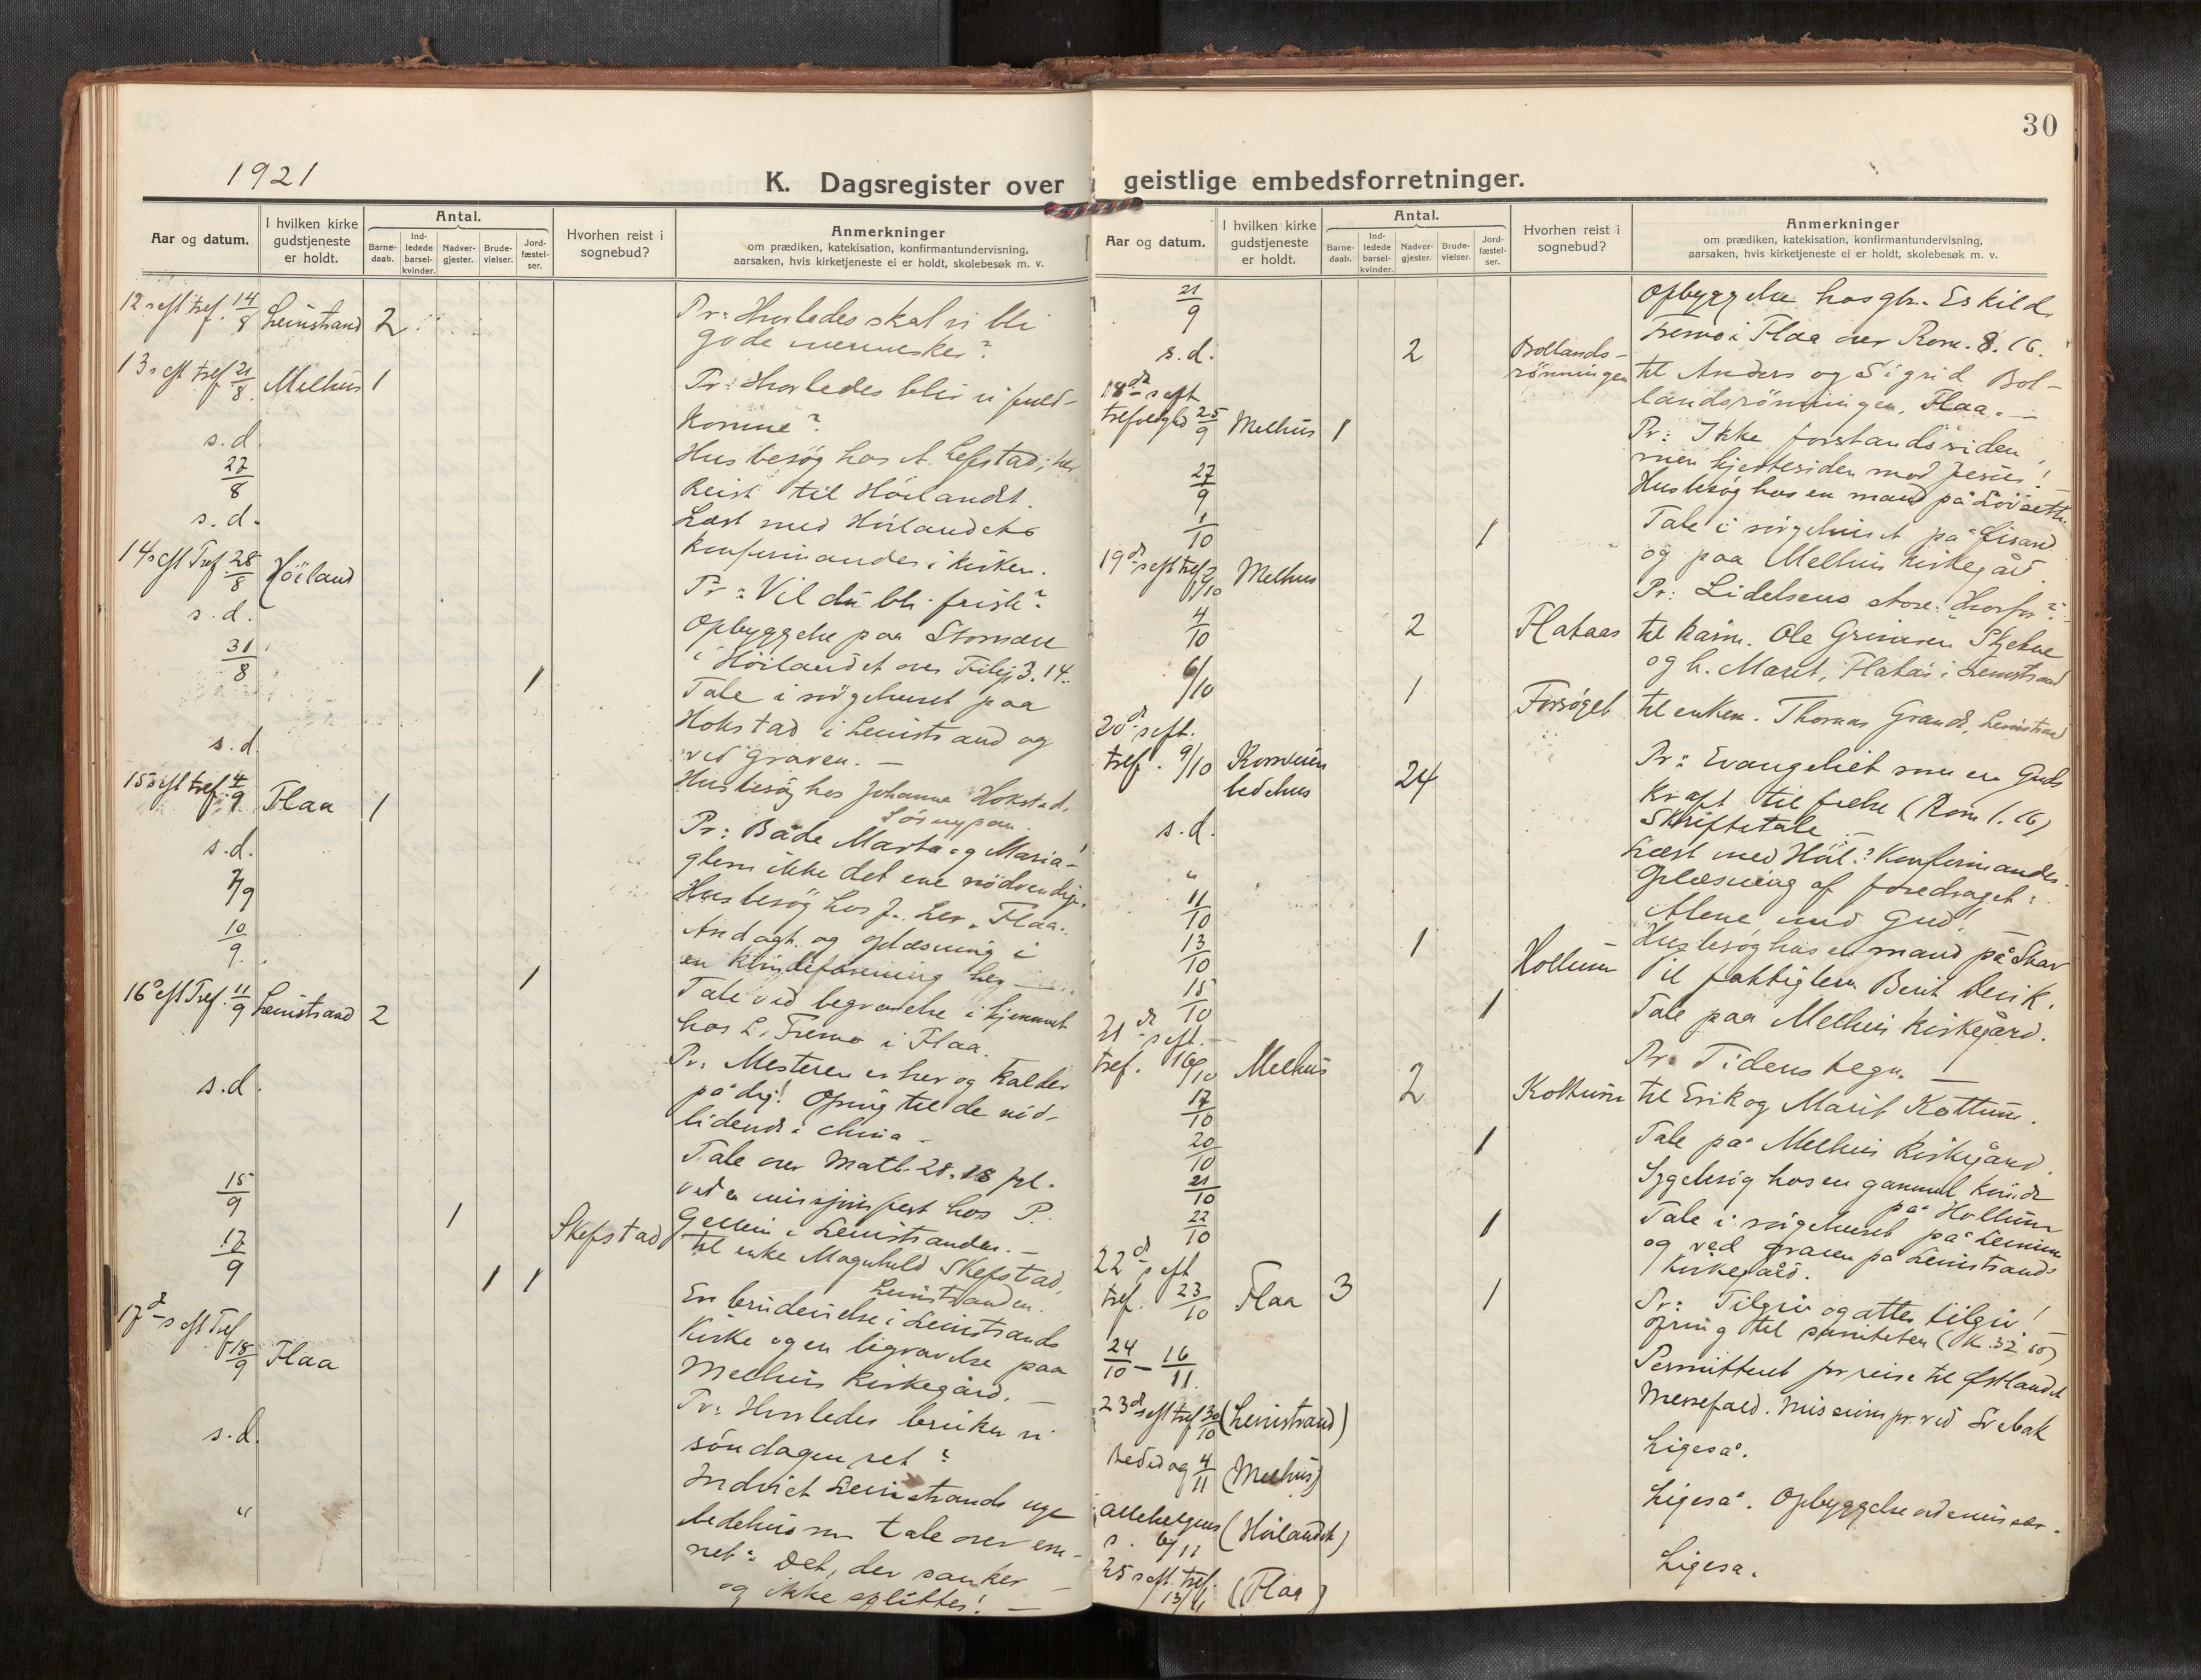 30
1921
K. Dagsregister over geistlige embedsforretninger.
Aar og datum.
I hvilken kirke gudstjeneste er holdt.
Antal.
Barne-daab.
Ind-ledede barsel-kvinder.
Nadver-gjester.
Brude-vielser.
Jord-fæstel-ser.
Hvorhen reist i sognebud?
Anmerkninger
om prædiken, katekisation, konfirmantundervisning,
aarsaken, hvis kirketjeneste ei er holdt, skolebesøk m. v.
12 s eft tref. 14/8 Leinstrand 2 Pr: Hvorledes skal vi bli
gode mennesker?
13 s eft tref 21/8 Melhus 1 Pr: Hvorledes blir vi fuld-
komne?
s.d. Husbesøg hos A. Lefstad; her
27/8 Reist til Höilandet.
s.d. Læst med Höilandets
konfirmander i kirken.
14 s eft Tref 28/8 Höiland Pr: Vil du bli frisk?
s.d. Opbyggelse paa
i Höilandet over Filip 3.14.
31/8 1 Tale i sörgehuset paa
Hokstad i Leinstrand og
ved graven. —
s.d. Husbesøg hos Johanne Hokstad,
15 s eft tref 4/9 Flaa 1 Pr: Både Marta og Maria -
glem ikke det ene nödvendige!
s.d. Husbesøg hos J. Ler, Flaa.
7/9 Andagt og oplæsning i
en kvindeforening her —
10/9 1 Tale ved begravelse i hjemmet
hos L. Fremo i Flaa.
16 s eft Tref. 11/9 Leinstrand 2 Pr: Mesteren er her og kalder
på dig! Ofring til de nöd-
lidende i China -
s.d. Tale over Math. 28.18 fgl.
ved en misjonsfest hos P.
i Leinstranden. —
15/9 1 Skefstad til enke Magnhild Skefstad,
Leinstranden.
17/9 1 1 En brudevielse i Leinstrands
kirke og en begravelse paa
Melhus kirkegård. —
17d s eft Tref 18/9 Flaa Pr: Hvorledes bruker vi
söndagen ret?
s.d. Indviet Leinstrands nye
bedehus m tale over em-
" net: Det, der sanker —
og ikke splitter! —
K. Dagsregister over geistlige embedsforretninger.
Aar og datum.
I hvilken kirke gudstjeneste er holdt.
Antal.
Barne-daab.
Ind-ledede barsel-kvinder.
Nadver-gjester.
Brude-vielser.
Jord-fæstel-ser.
Hvorhen reist i sognebud?
Anmerkninger
om prædiken, katekisation, konfirmantundervisning,
aarsaken, hvis kirketjeneste ei er holdt, skolebesøk m. v.
21/9 Opbyggelse hos gbr. Eskild
Fremo i Flaa over Rom. 8. 16.
s.d. 2 Bollands-rönningen til Anders og Sigrid Bol-
landsrönningen, Flaa. —
18de s eft trefoldighed 25/9 Melhus 1 Pr: Ikke forstandssiden,
men hjertesiden mod Jesus!
27/9 Husbesøg hos en mand på Lövseth.
1/10 1 Tale i sörgehuset på
og paa Melhus kirkegård.
19de s eft tref 2/10 Melhus Pr: Lidelsens store: Hvorfor?
4/10 2 Flataas til kaarm. Ole Grimsen Skjetne
og h. Marit, Flatås i Leinstrand
6/10 1 Forsöget til enkem. Thomas Grande, Leinstrand
20de s eft. tref. 9/10 bedehus 24 Pr: Evangeliet som en Guds
kraft til frelse (Rom 1. 16)
Skriftetale —
s.d. Læst med Höil. konfirmander.
" Oplæsning af foredraget:
Alene med Gud!
11/10 Husbesøg hos en mand på
13/10 1 Hollum Til fattiglem Berit
15/10 1 Tale paa Melhus kirkegård.
21de s eft. tref. 16/10 Melhus Pr: Tidens tegn. —
17/10 2 Kottum til Erik og Marit Kottum.
20/10 1 Tale på Melhus kirkegård.
21/10 Sygebesøg hos en gammel kvinde
på Hollum
22/10 1 Tale i sörgehuset på
og ved graven på Leinstrands
kirkegård.
22de s eft tref. 23/10 Flaa 3 1 Pr: Tilgiv og atter tilgiv!
Ofring til
24/10 – 16/11 Permitteret for reise til Østlandet
23de s eft tref 30/10 (Leinstrand) Messefald.
Bededag 4/11 (Melhus) Ligeså.
Allehelgens s. 6/11 (Höilandet) Ligeså. Opbyggelse
25 s eft tref. 13/11 (Flaa) Ligesa.